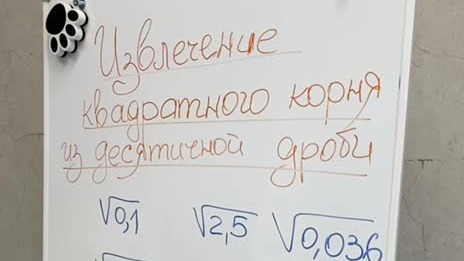 Извлечение
квадратного корня
из десятичной дроби
√0,1 √2,5 √0,036